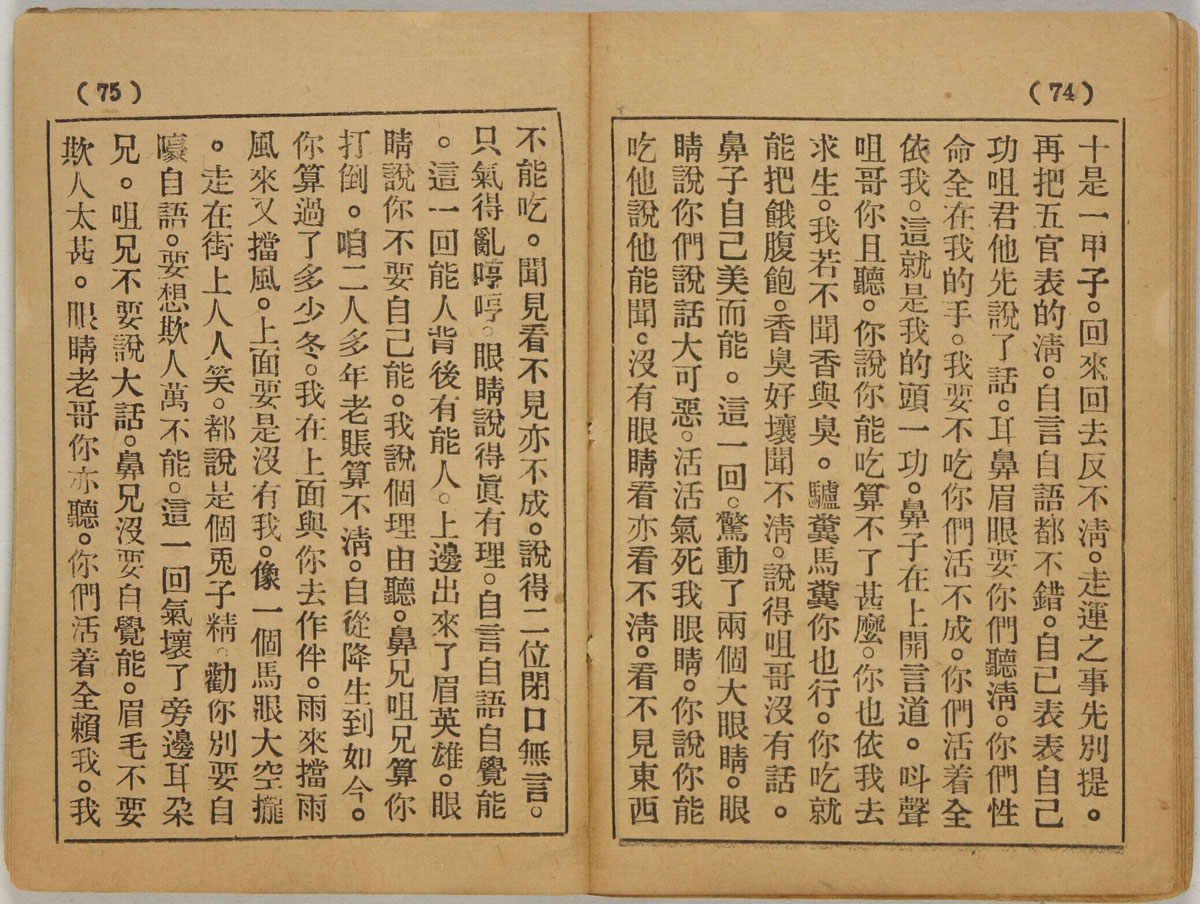 (74)
十是一甲子。回來回去反不淸。走運之事先別提。
再把五官表的淸。自言自語都不錯。自己表表自己
功咀君他先說了話。耳鼻眉眼要你們聽淸。你們性
命全在我的手。我要不吃你們活不成。你們活着全
依我。這就是我的頭一功。鼻子在上開言道。呌聲
咀哥你且聽。你說你能吃算不了甚麼。你也依我去
求生。我若不聞香與臭。驢糞馬糞你也行。你吃就
能把餓腹飽。香臭好壞聞不淸。說得咀哥沒有話。
鼻子自己美而能。這一回。驚動了兩個大眼睛。眼
睛說你們說話大可惡。活活氣死我眼睛。你說你能
吃他說他能聞。沒有眼睛看亦看不淸。看不見東西
(75)
不能吃。聞見看不見亦不成。說得二位閉口無言。
只氣得亂哼哼。眼睛說得眞有理。自言自語自覺能
。這一回能人背後有能人。上邊出來了眉英雄。眼
睛說你不要自己能。我說個理由聽。鼻兄咀兄算你
打倒。咱二人多年老賬算不淸。自從降生到如今。
你算過了多少冬。我在上面與你去作伴。雨來擋雨
風來又擋風。上面要是沒有我。像一個馬眼大空攏
。走在街上人人笑。都說是個兎子精。勸你別要自
嚎自語。要想欺人萬不能。這一回氣壞了旁邊耳朶
兄。咀兄不要說大話。鼻兄沒要自覺能。眉毛不要
欺人太甚。眼睛老哥你亦聽。你們活着全賴我。我